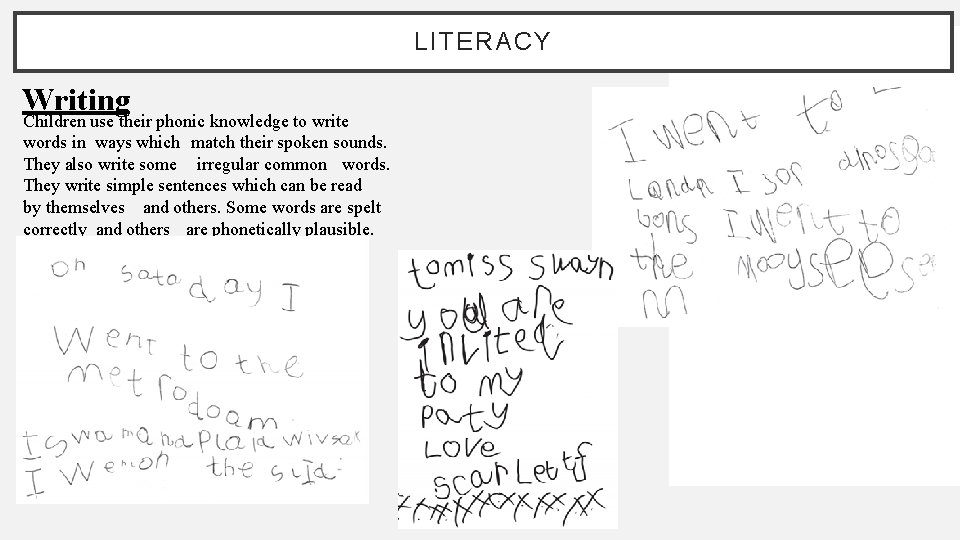 LITERACY
Writing
Children use their phonic knowledge to write
words in ways which match their spoken sounds.
They also write some irregular common words.
They write simple sentences which can be read
by themselves and others. Some words are spelt
correctly and others are phonetically plausible.
on satoday I
Went to the
metro
doam.
I Swam and Plaid wiv
I Went on the slid.
to miss swayn
you are
invited
to my
paty
Love
scarlett
xxxxxxxxxxx
I went to
Landn I sor
bons I went to
the
m